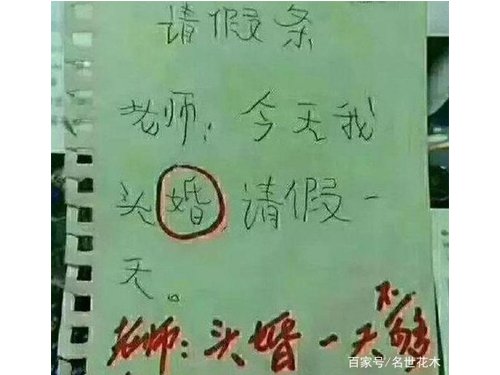 请假条
老师:今天我
头婚,请假一
天。
老师:头婚一天不够
百家号/名世花木